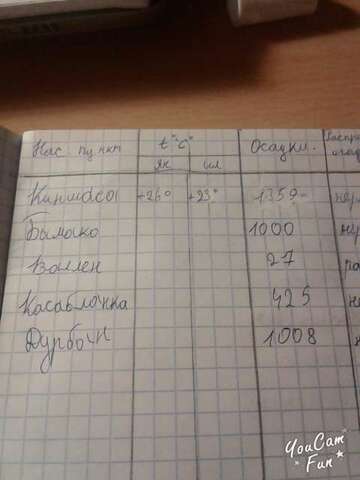 Нас. пункт t°"c" Осадки. Распре
ян ил
Киншаса +26° +23° 1359
Бамако 1000
Валлен 27
Касабланка 425
Дурбан 1008
YouCam
Fun